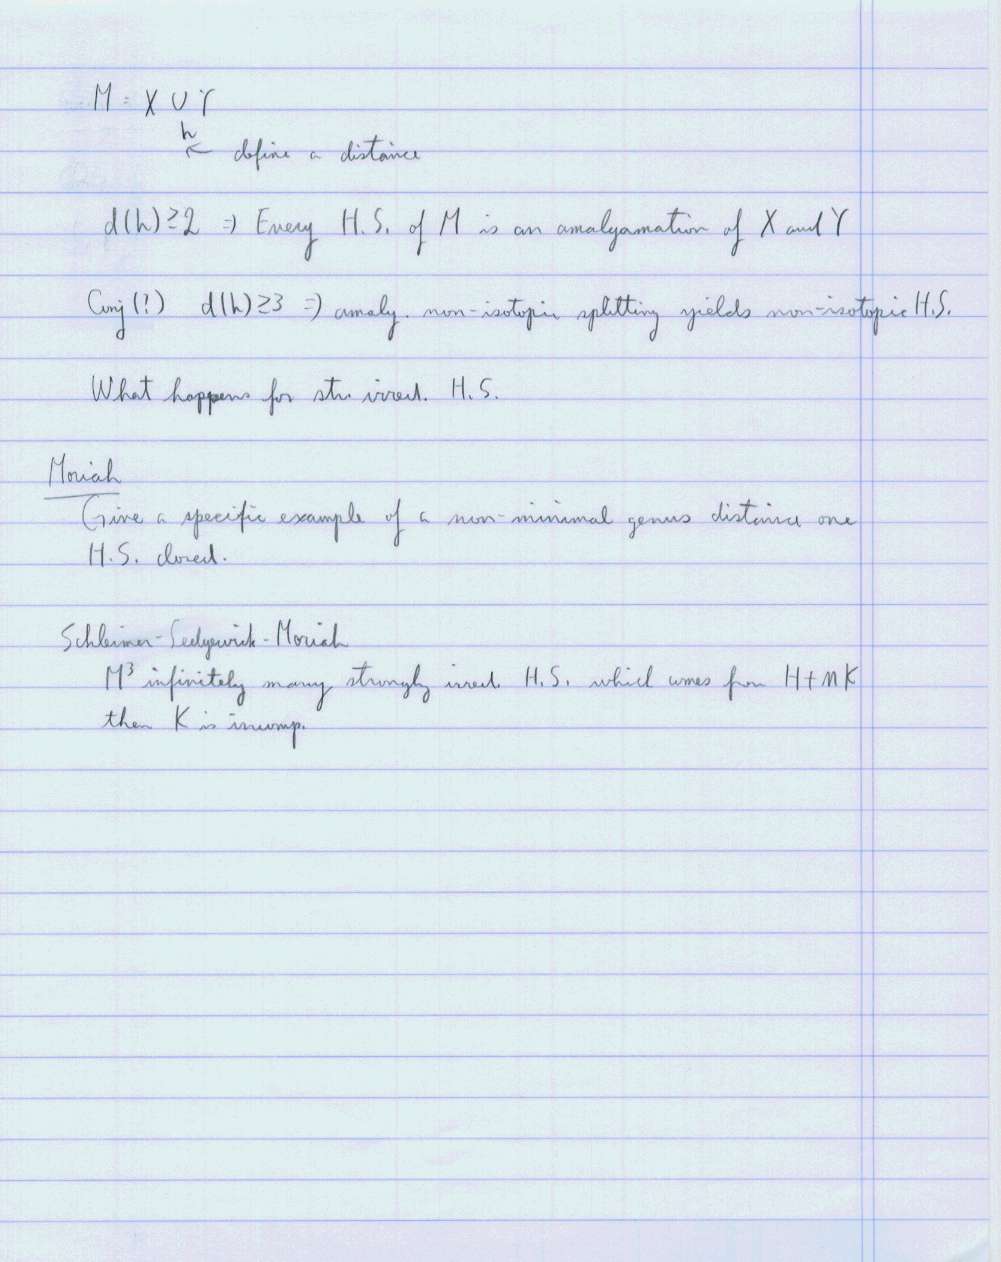 M = X ∪ Y
h
← define a distance
d(h) ≥ 2 ⇒ Every H.S. of M is an amalgamation of X and Y
Conj (!) d(h) ≥ 3 ⇒ amalg. non-isotopic splitting yields non-isotopic H.S.
What happens for str. irred. H.S.
Moriah
Give a specific example of a non-minimal genus distance one
H.S. closed.
Schleimer-Sedgwick-Moriah
M³ infinitely many strongly irred. H.S. which comes from H+nK
then K is incomp.